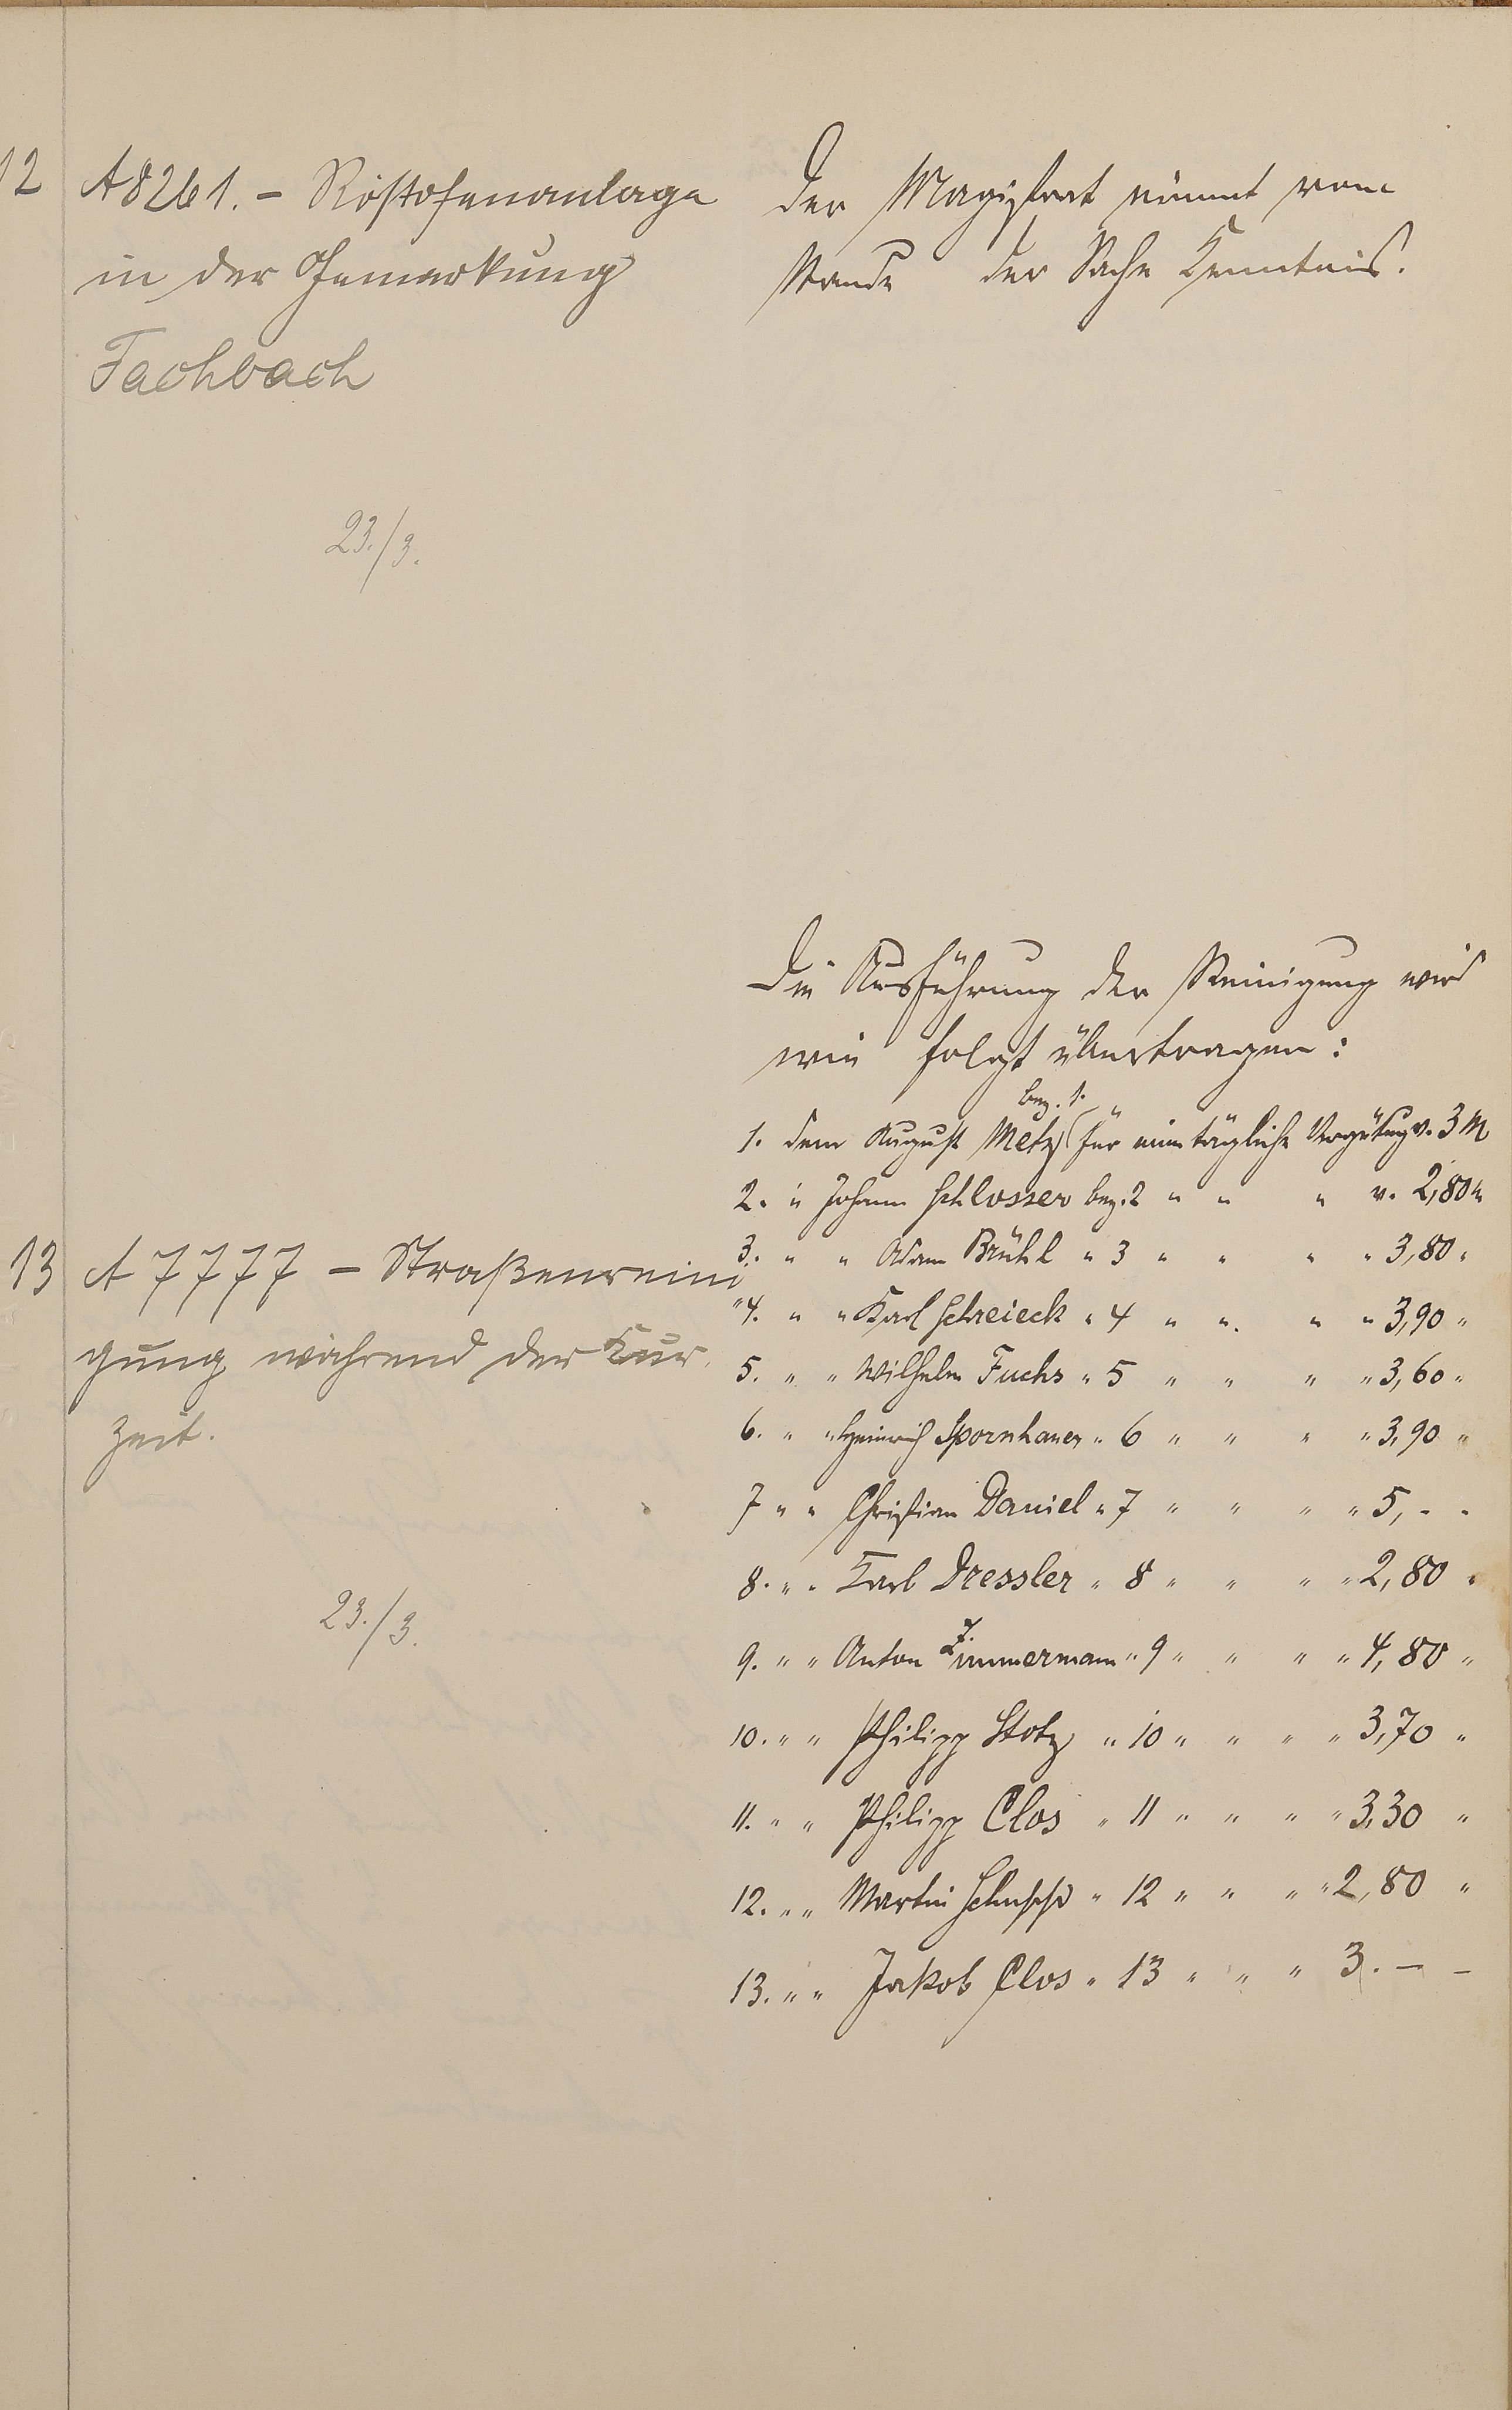 12
A 8261. - Röstofenanlage
in der Gemarkung
Fachbach
23./3.
Der Magistrat nimmt vom
Stande der Sache Kenntnis.
13
A 7777 - Straßenreini
gung während der Kur-
zeit.
23./3.
Die Ausführung der Reinigung wird
wie folgt übertragen:
bez. 1.
1. dem August Metz für eine tägliche Vergütung v. 3 M
2. " Johann Schlosser bez. 2 " " " v. 2,80 M
3. " " Adam Brühl " 3 " " " " 3,80 "
4. " " Karl Schreieck " 4 " " " " 3,90 "
5. " " Wilhelm Fuchs " 5 " " " " 3,60 "
6. " " Heinrich Spornhauer " 6 " " " " 3,90 "
7 " " Christian Daniel " 7 " " " " 5,- "
8. " " Karl Dressler " 8 " " " " 2,80 "
9. " " Anton Zimmermann " 9 " " " " 4,80 "
10. " " Philipp Stotz " 10 " " " " 3,70 "
11. " " Philipp Clos " 11 " " " " 3,30 "
12. " " Martin " 12 " " " " 2,80 "
13. " " Jakob Clos " 13 " " " 3. - -